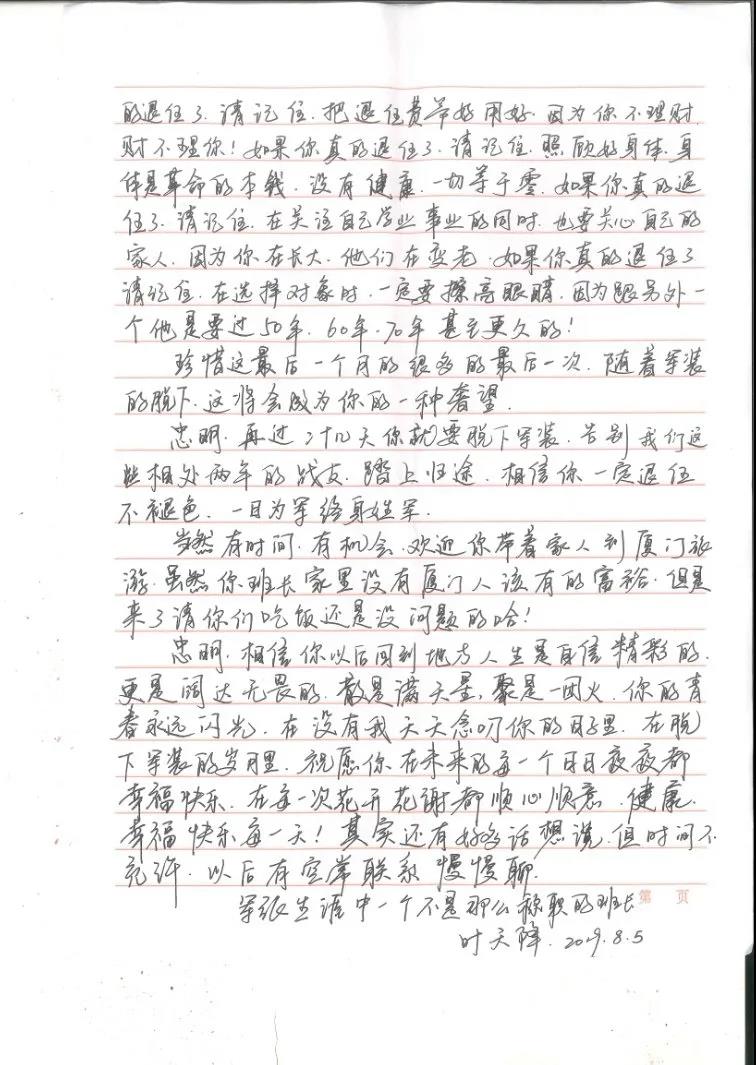 的退伍了，请记住，把退伍费筹好用好，因为你不理财，
财不理你！如果你真的退伍了，请记住，照顾好身体，身
体是革命的本钱，没有健康，一切等于零，如果你真的退
伍了，请记住，在关注自己学业事业的同时，也要关心自己的
家人，因为你在长大，他们在变老，如果你真的退伍了
请记住，在选择对象时，一定要擦亮眼睛，因为跟另外一
个他是要过50年，60年，70年甚至更久的！
珍惜这最后一个月的很多的最后一次，随着军装
的脱下，这将会成为你的一种奢望。
忠明，再过二十几天你就要脱下军装，告别我们这
些相处两年的战友，踏上归途，相信你一定退伍
不褪色，一日为军终身姓军。
当然有时间，有机会，欢迎你带着家人到厦门旅
游，虽然你班长家里没有厦门人该有的富裕，但是
来了请你们吃饭还是没问题的哈！
忠明，相信你以后回到地方人生是自信精彩的，
更是阔达无畏的，散是满天星，聚是一团火，你的青
春永远闪光，在没有我天天念叨你的日子里，在脱
下军装的岁月里，祝愿你在未来的每一个日日夜夜都
幸福快乐，在每一次花开花谢都顺心顺意，健康，
幸福快乐每一天！其实还有好多话想说，但时间不
允许，以后有空常联系，慢慢聊。
军旅生涯中一个不是那么称职的班长
第 页
叶天降，2019.8.5